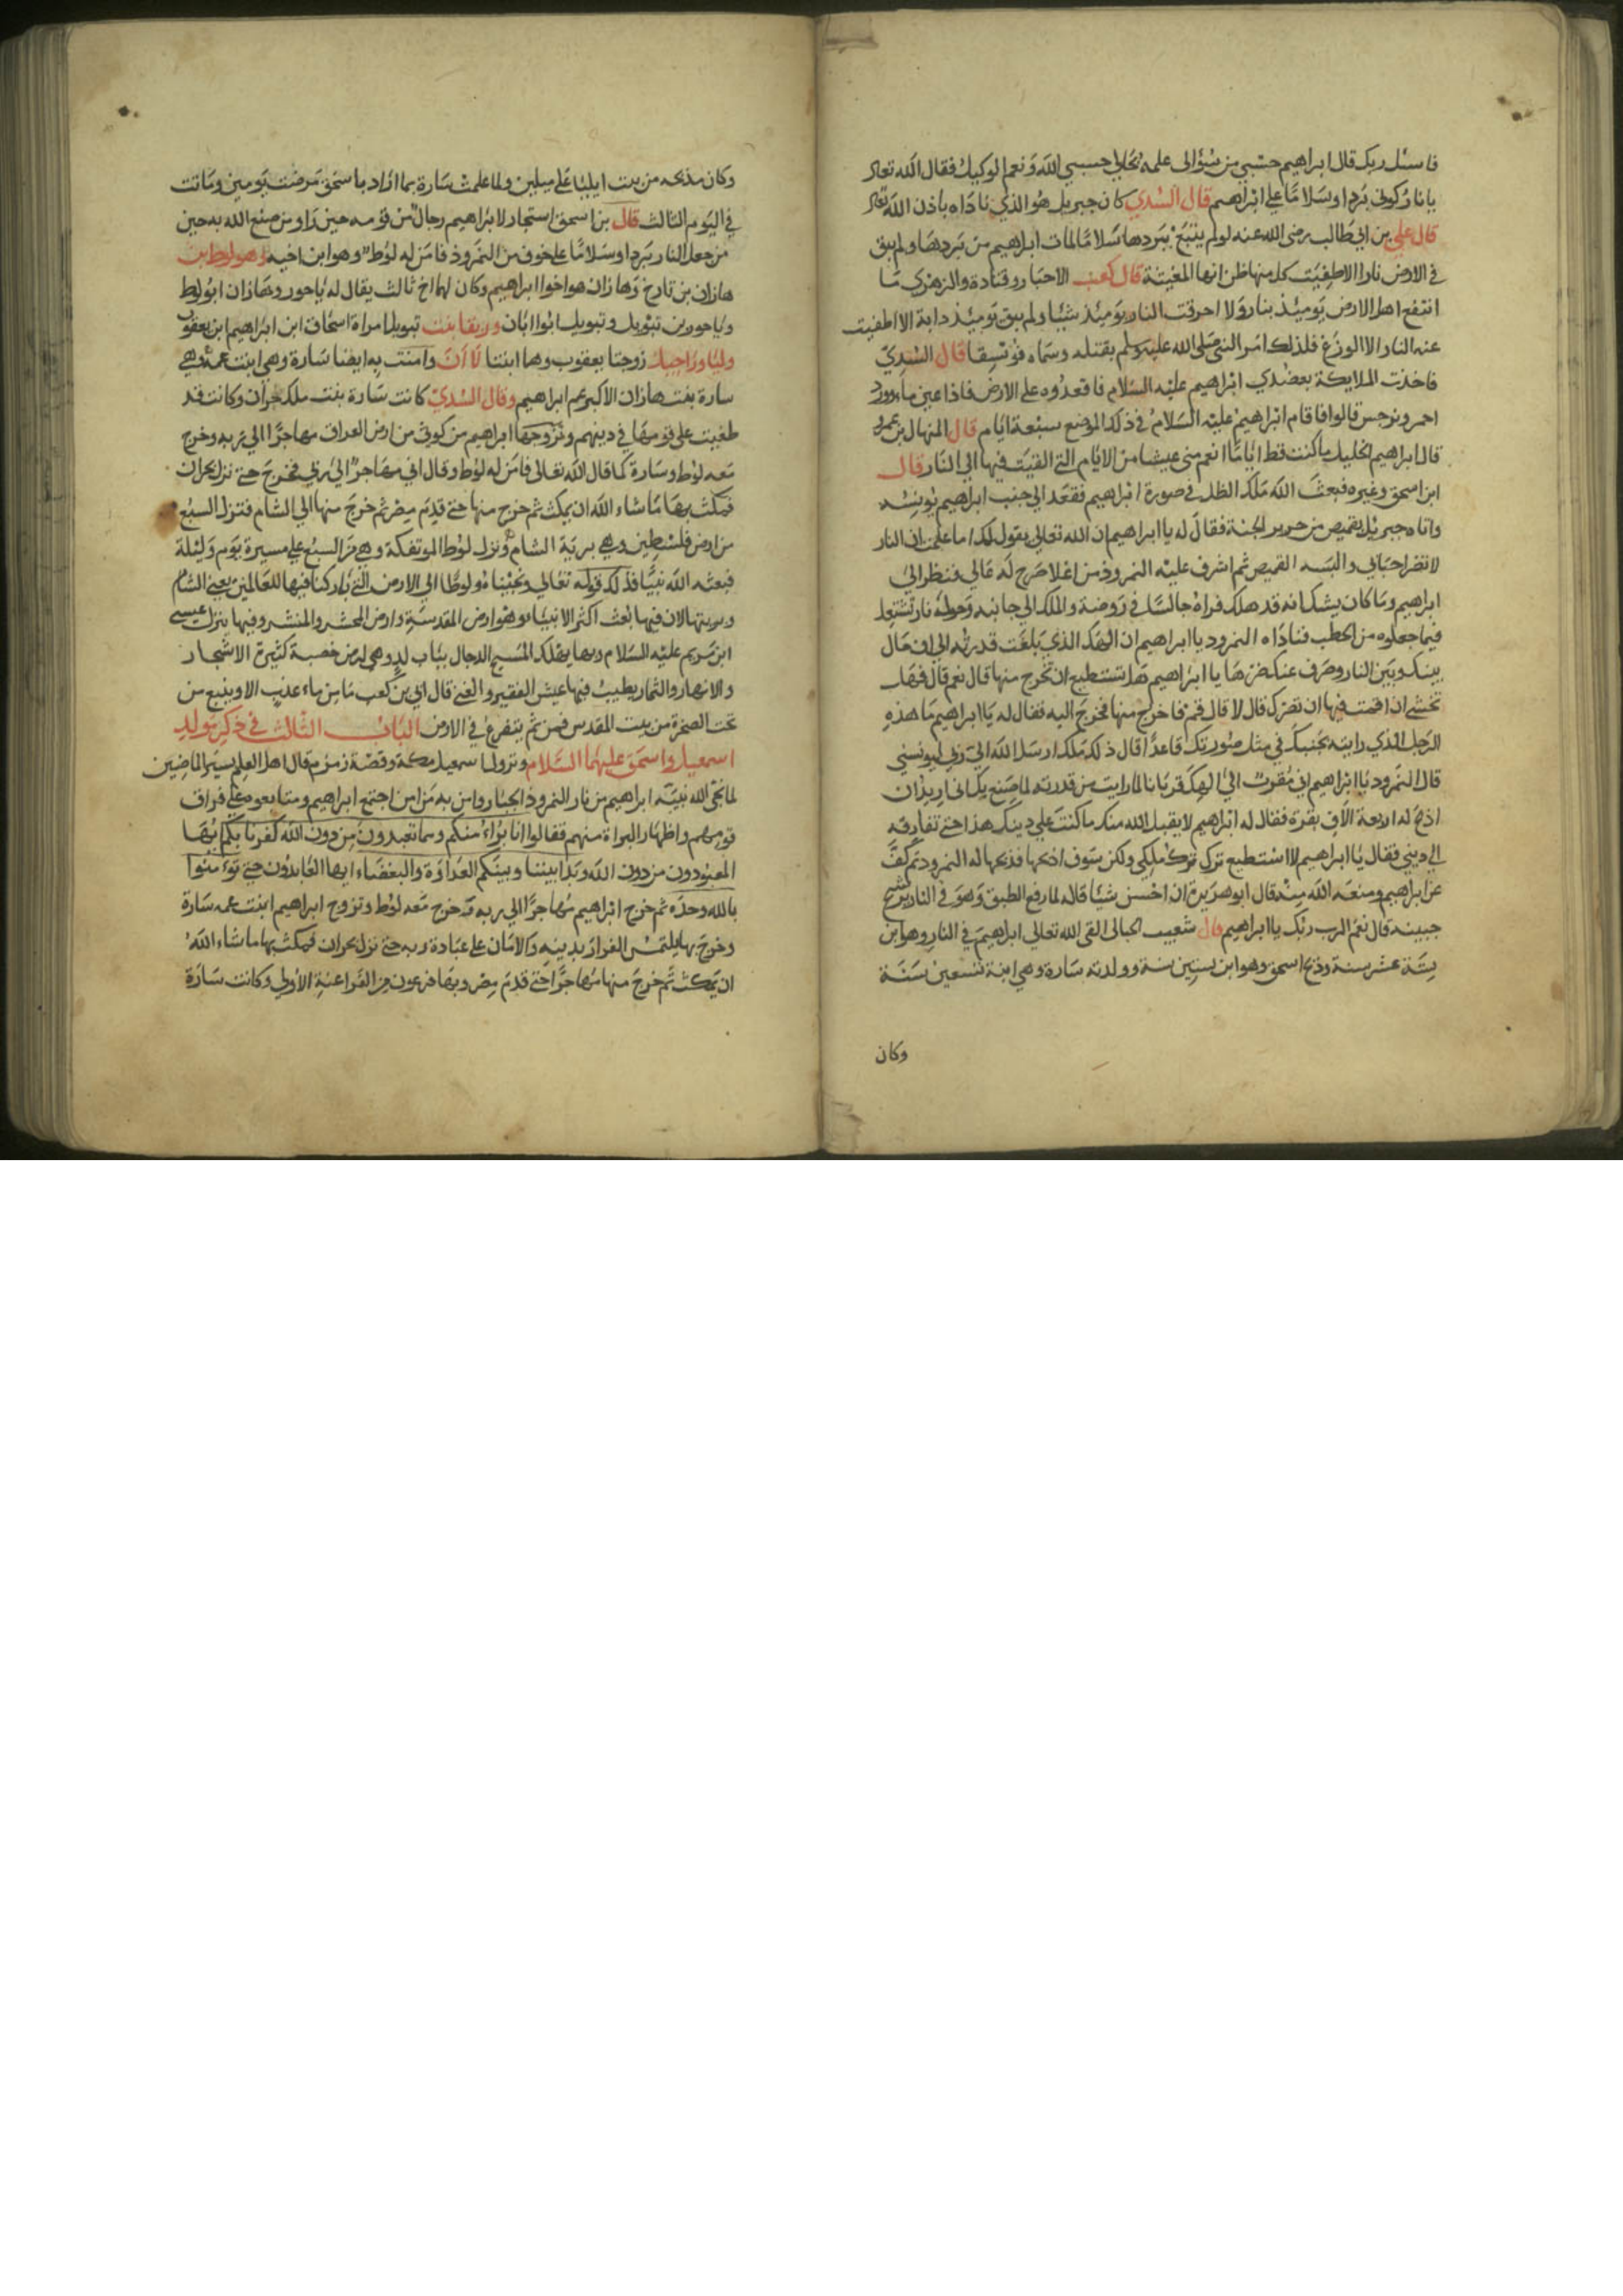 فاسئل ربك قال ابراهيم حسبي من سؤالى علمه بحالي حسبي الله ونعم الوكيل فقال الله تعالى
يا نار كوني بردا وسلاما على ابراهيم قال السدي كان جبريل هو الذي ناداه باذن الله تعالى
قال علي بن ابي طالب رضى الله عنه لو لم يتبع بردها سلاما لمات ابراهيم من بردها ولم يبق
في الارض نارا الا طفيت كل منها ظن انها المعنية قال كعب الاحبار وقتادة والزهرى ما
انتفع اهل الارض يومئذ بنار ولا احرقت النار يومئذ شيئا ولم يبق يومئذ دابة الا اطفيت
عنه النار الا الوزغ فلذلك امر النبي صلى الله عليه وسلم بقتله وسماه فويسقا قال السدي
فاخذت الملايكة بعضدي ابراهيم عليه السلام فاقعدوه على الارض فاذا عين ماء وورد
احمر ونرجس قالوا فاقام ابراهيم عليه السلام في ذلك الموضع سبعة ايام قال المنهال بن عمرو
قال ابراهيم الخليل ما كنت قط اياما انعم مني عيشا من الايام التي القيت فيها الي النار قال
ابن اسحق وغيره فبعث الله ملك الظل في صورة ابراهيم فقعد الي جنب ابراهيم يونسه
واتاه جبريل بقميص من حرير الجنة فقال له يا ابراهيم ان الله تعالى يقول لك اما علمت ان النار
لا تضر احبابي والبسه القميص ثم اشرف عليه النمروذ من اعلا صرح له عالي فنظر الي
ابراهيم وما كان يشك انه قد هلك فراه جالسا في روضة والملك الي جانبه وحوله نار تشتعل
فيما جعلوه من الحطب فناداه النمرود يا ابراهيم ان الهك الذي بلغت قدرته الي ان حال
بينك وبين النار وصرف عنك ضرها يا ابراهيم هل تستطيع ان تخرج منها قال نعم قال فهل
تخشى ان اقمت فيها ان تضرك قال لا قال قم فاخرج منها فخرج اليه فقال له يا ابراهيم ما هذه
الرجل الذي رايته بجنبك في مثل صورتك قاعدا قال ذلك ملك ارسله الله الي ربي ليونسني
قال النمرود يا ابراهيم اني مقرب الي الهك قربانا لما رايت من قدرته لما صنع بك اني اريد ان
اذبح له اربعة الاف بقرة فقال له ابراهيم لا يقبل الله منك ما كنت علي دينك هذا حتى تفارقه
الي ديني فقال يا ابراهيم لا استطيع ترك ملكي ولكن سوف اذبحها فذبحها له النمرود ثم كف
عن ابراهيم ومنعه الله منه قال ابو هريرة ان احسن شيئا قاله لما رفع الطبق وهو في النار يرشح
جبينه قال نعم الرب ربك يا ابراهيم قال شعيب الجبائى القى الله تعالي ابراهيم في النار وهو ابن
ستة عشر سنة وذبح اسحق وهو ابن سنين سنة وولدته سارة وهي ابنة تسعين سنة
وكان
وكان مذبحه من بيت ايليا على ميلين ولما علمت سارة بما اراد باسحق مرضت يومين وماتت
في اليوم الثالث قال بن اسحق استجار لابراهيم رجال من قومه حين راو من صنع الله به حين
من جعل النار بردا وسلاما على خوف من النمروذ فامن له لوط وهو ابن اخيه وهو لوط ابن
هازان بن تارخ وهازان هو اخوا ابراهيم وكان لهما اخ ثالث يقال له ياحور وهازان ابو لوط
وياحور بن تبويل وتبويل ابوا ابان وربقا بنت تبويل امراة اسحاق ابن ابراهيم ابن يعقوب
وليا وراحيل زوجتا يعقوب وهما ابنتا لاان وامنت به ايضا سارة وهي ابنت عمه وهي
سارة بنت هازان الاكبر عم ابراهيم وقال السدي كانت سارة بنت ملك حران وكانت قد
طعنت على قومها في دينهم وتزوجها ابراهيم من كوثى من ارض العراق مهاجرا الي ربه وخرج
معه لوط وسارة كما قال الله تعالى فامن له لوط وقال اني مهاجر الي ربي فخرج حتى نزل بحران
فمكث بها ما شاء الله ان يمكث ثم خرج منها حتى قدم مصر ثم خرج منها الي الشام فنزل السبع
من ارض فلسطين وهي برية الشام ونزل لوط الموتفكة وهي من السبع علي مسيرة يوم وليلة
فبعثه الله نبيا فذلك قوله تعالي ونجيناه ولوطا الي الارض التي باركنا فيها للعالمين يعني الشام
وبركتها الان فيها بعث اكثر الانبياء وهو ارض المقدسة وارض المحشر والمنشر وفيها ينزل عيسى
ابن مريم عليه السلام وبها يهلك المسيح الدجال بباب لد وهي ارض خصبة كثيرة الاشجار
والانهار والثمار يطيب فيها عيش الفقير والغني قال ابي بن كعب ما من ماء عذب الا وينبع من
تحت الصخرة من بيت المقدس فمن ثم يتفرع في الارض الباب الثالث في ذكر مولد
اسمعيل واسحق عليهما السلام ونزول اسمعيل مكة وقصة زمزم قال اهل العلم بسير الماضين
لما نجى الله نبيه ابراهيم من نار النمروذ الجبار وامن به من امن اجتمع ابراهيم ومتابعوه علي فراق
قومهم واظهار البراة منهم فقالوا انا برآء منكم ومما تعبدون من دون الله كفرنا بكم ايها
المعبودون من دون الله وبدا بيننا وبينكم العداوة والبغضاء ايها العابدون حتى تؤمنوا
بالله وحده ثم خرج ابراهيم مهاجرا الي ربه وخرج معه لوط وتزوج ابراهيم ابنت عمه سارة
وخرج بها يلتمس الفرار بدينه والامان على عبادة ربه حتى نزل بحران فمكث بها ما شاء الله
ان يمكث ثم خرج منها مهاجرا حتى قدم مصر وبها فرعون من الفراعنة الاولي وكانت سارة